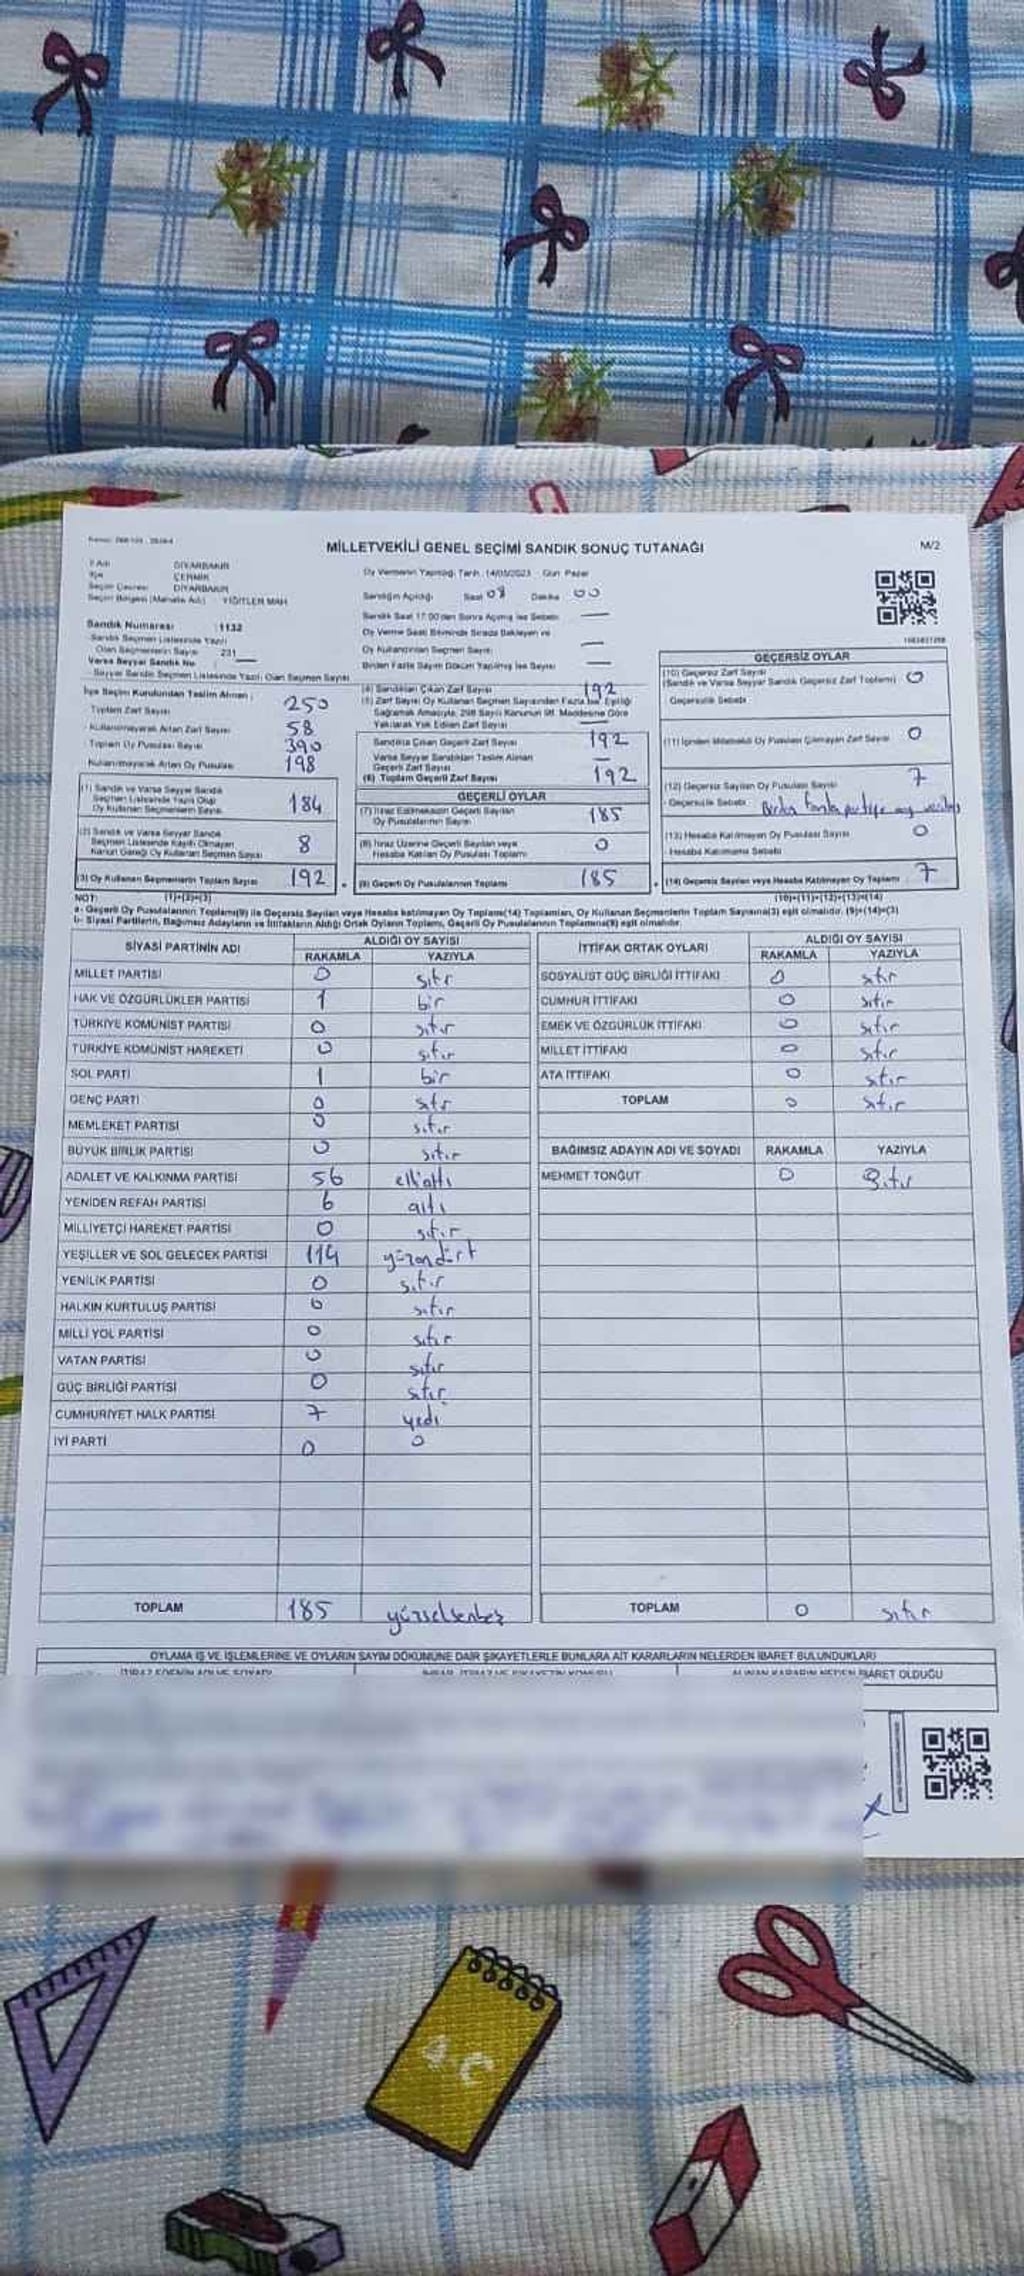 MİLLETVEKİLİ GENEL SEÇİMİ SANDIK SONUÇ TUTANAĞI
M/2
İl Adı DİYARBAKIR
İlçe ÇERMİK
Seçim Çevresi DİYARBAKIR
Seçim Bölgesi (Mahalle Adı) YİĞİTLER MAH
Oy Vermenin Yapıldığı Tarih 14/05/2023 Gün Pazar
Sandığın Açıldığı Saat 08 Dakika 00
Sandık Saat 17:00'den Sonra Açılmış İse Sebebi
Oy Verme Saati Bitiminde Sırada Bekleyen ve
Oy Kullandırılan Seçmen Sayısı
Birden Fazla Sayım Döküm Yapılmış İse Sayısı
Sandık Numarası 1132
Sandık Seçmen Listesinde Yazılı
Olan Seçmenlerin Sayısı 231
Varsa Seyyar Sandık No
Seyyar Sandık Seçmen Listesinde Yazılı Olan Seçmen Sayısı
İlçe Seçim Kurulundan Teslim Alınan
Toplam Zarf Sayısı 250
Kullanılmayarak Artan Zarf Sayısı 58
Toplam Oy Pusulası Sayısı 390
Kullanılmayarak Artan Oy Pusulası 198
(1) Sandık ve Varsa Seyyar Sandık
Seçmen Listesinde Yazılı Olup
Oy Kullanan Seçmenlerin Sayısı 184
(2) Sandık ve Varsa Seyyar Sandık
Seçmen Listesinde Kayıtlı Olmayan
Kanun Gereği Oy Kullanan Seçmen Sayısı 8
(3) Oy Kullanan Seçmenlerin Toplam Sayısı 192
(4) Sandıktan Çıkan Zarf Sayısı 192
(5) Zarf Sayısı Oy Kullanan Seçmen Sayısından Fazla İse, Eşitliği
Sağlamak Amacıyla, 298 Sayılı Kanunun 98. Maddesine Göre
Yakılarak Yok Edilen Zarf Sayısı
Sandıkta Çıkan Geçerli Zarf Sayısı 192
Varsa Seyyar Sandıktan Teslim Alınan
Geçerli Zarf Sayısı
(6) Toplam Geçerli Zarf Sayısı 192
GEÇERLİ OYLAR
(7) İtiraz Edilmeksizin Geçerli Sayılan
Oy Pusulalarının Sayısı 185
(8) İtiraz Üzerine Geçerli Sayılan veya
Hesaba Katılan Oy Pusulası Toplamı 0
(9) Geçerli Oy Pusulalarının Toplamı 185
GEÇERSİZ OYLAR
(10) Geçersiz Zarf Sayısı
(Sandık ve Varsa Seyyar Sandık Geçersiz Zarf Toplamı) 0
Geçersizlik Sebebi
(11) İçinden Milletvekili Oy Pusulası Çıkmayan Zarf Sayısı 0
(12) Geçersiz Sayılan Oy Pusulası Sayısı 7
Geçersizlik Sebebi Birden fazla partiye oy
(13) Hesaba Katılmayan Oy Pusulası Sayısı 0
Hesaba Katılmama Sebebi
(14) Geçersiz Sayılan veya Hesaba Katılmayan Oy Toplamı 7
NOT: (1)+(2)=(3) (10)+(11)+(12)+(13)=(14)
a- Geçerli Oy Pusulalarının Toplamı(9) ile Geçersiz Sayılan veya Hesaba katılmayan Oy Toplamı(14) Toplamları, Oy Kullanan Seçmenlerin Toplam Sayısına(3) eşit olmalıdır. (9)+(14)=(3)
b- Siyasi Partilerin, Bağımsız Adayların ve İttifakların Aldığı Ortak Oyların Toplamı, Geçerli Oy Pusulalarının Toplamına(9) eşit olmalıdır.
SİYASİ PARTİNİN ADI ALDIĞI OY SAYISI
RAKAMLA YAZIYLA
MİLLET PARTİSİ 0 sıfır
HAK VE ÖZGÜRLÜKLER PARTİSİ 1 bir
TÜRKİYE KOMÜNİST PARTİSİ 0 sıfır
TÜRKİYE KOMÜNİST HAREKETİ 0 sıfır
SOL PARTİ 1 bir
GENÇ PARTİ 0 sıfır
MEMLEKET PARTİSİ 0 sıfır
BÜYÜK BİRLİK PARTİSİ 0 sıfır
ADALET VE KALKINMA PARTİSİ 56 ellialtı
YENİDEN REFAH PARTİSİ 6 altı
MİLLİYETÇİ HAREKET PARTİSİ 0 sıfır
YEŞİLLER VE SOL GELECEK PARTİSİ 114 yüzondört
YENİLİK PARTİSİ 0 sıfır
HALKIN KURTULUŞ PARTİSİ 0 sıfır
MİLLİ YOL PARTİSİ 0 sıfır
VATAN PARTİSİ 0 sıfır
GÜÇ BİRLİĞİ PARTİSİ 0 sıfır
CUMHURİYET HALK PARTİSİ 7 yedi
İYİ PARTİ 0 0
TOPLAM 185 yüzseksenbeş
İTTİFAK ORTAK OYLARI ALDIĞI OY SAYISI
RAKAMLA YAZIYLA
SOSYALİST GÜÇ BİRLİĞİ İTTİFAKI 0 sıfır
CUMHUR İTTİFAKI 0 sıfır
EMEK VE ÖZGÜRLÜK İTTİFAKI 0 sıfır
MİLLET İTTİFAKI 0 sıfır
ATA İTTİFAKI 0 sıfır
TOPLAM 0 sıfır
BAĞIMSIZ ADAYIN ADI VE SOYADI RAKAMLA YAZIYLA
MEHMET TONĞUT 0 Sıfır
TOPLAM 0 sıfır
OYLAMA İŞ VE İŞLEMLERİNE VE OYLARIN SAYIM DÖKÜMÜNE DAİR ŞİKAYETLERLE BUNLARA AİT KARARLARIN NELERDEN İBARET BULUNDUKLARI
İTİRAZ EDENİN ADI VE SOYADI
ALINAN KARARIN NEDEN İBARET OLDUĞU